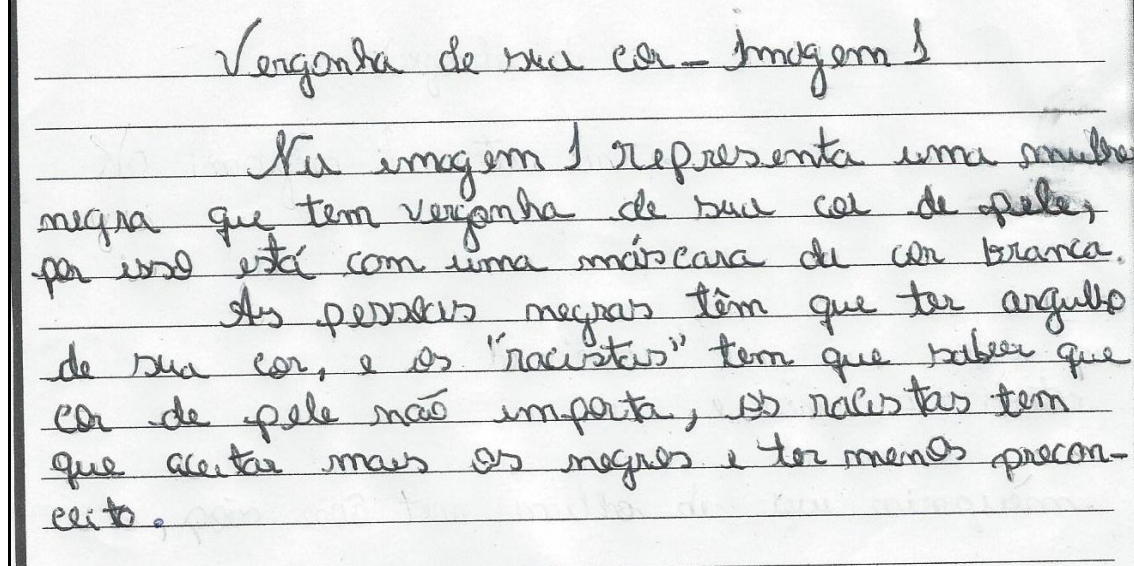 Vergonha de sua cor - Imagem 1
Na imagem 1 representa uma mulher
negra que tem vergonha de sua cor de pele,
por isso está com uma máscara da cor branca.
As pessoas negras têm que ter orgulho
de sua cor, e os "racistas" tem que saber que
cor de pele não importa, os racistas tem
que aceitar mais os negros e ter menos precon-
ceito.